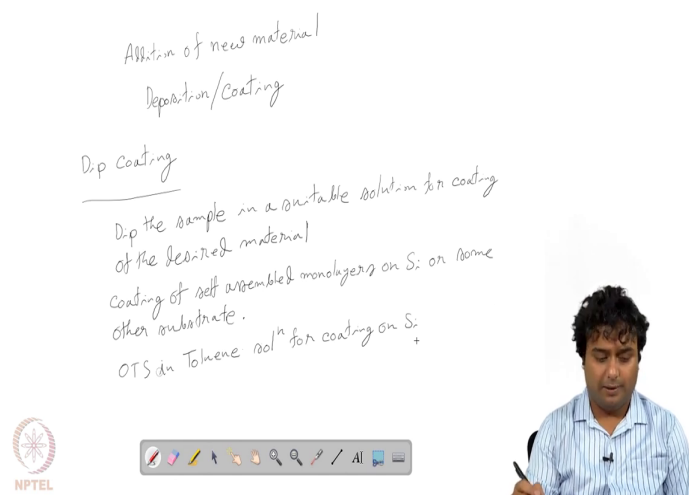 Addition of new material
Deposition/Coating
Dip Coating
Dip the sample in a suitable solution for coating
of the desired material
Coating of self assembled monolayers on Si or some
other substrate.
OTS in Toluene solⁿ for coating on Si
A
NPTEL